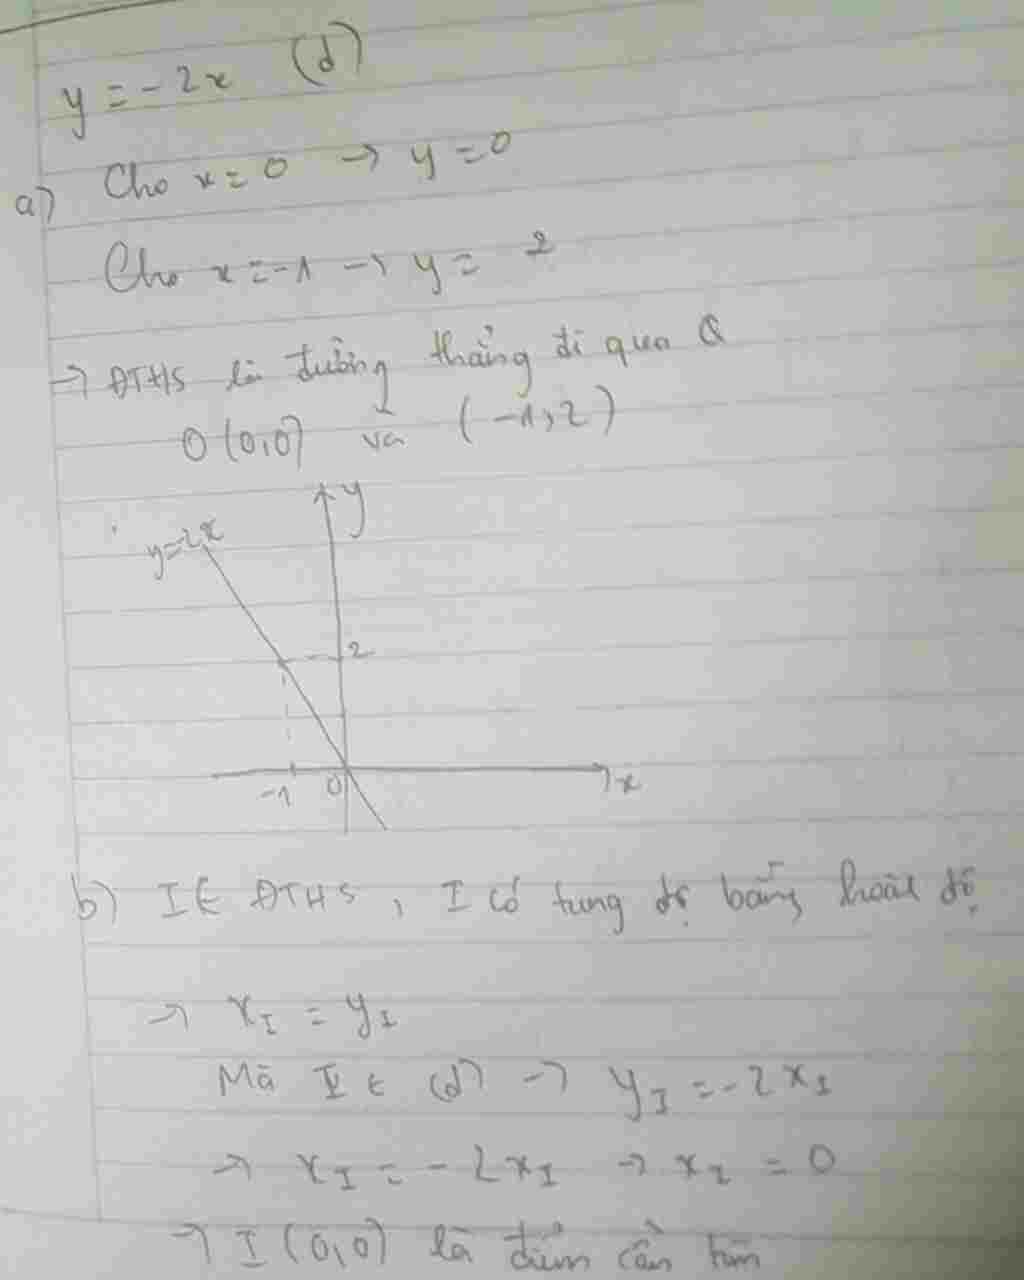 y = -2x (d)
a) Cho x = 0 → y = 0
Cho x = -1 → y = 2
→ ĐTHS là đường thẳng đi qua
O(0,0) và (-1,2)
y
y=-2x
2
-1 0 x
b) I ∈ ĐTHS, I có tung độ bằng hoành độ
→ x_I = y_I
Mà I ∈ (d) → y_I = -2x_I
→ x_I = -2x_I → x_I = 0
→ I(0,0) là điểm cần tìm